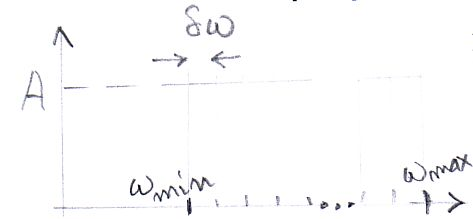 δω
A
ωmin
ωmax